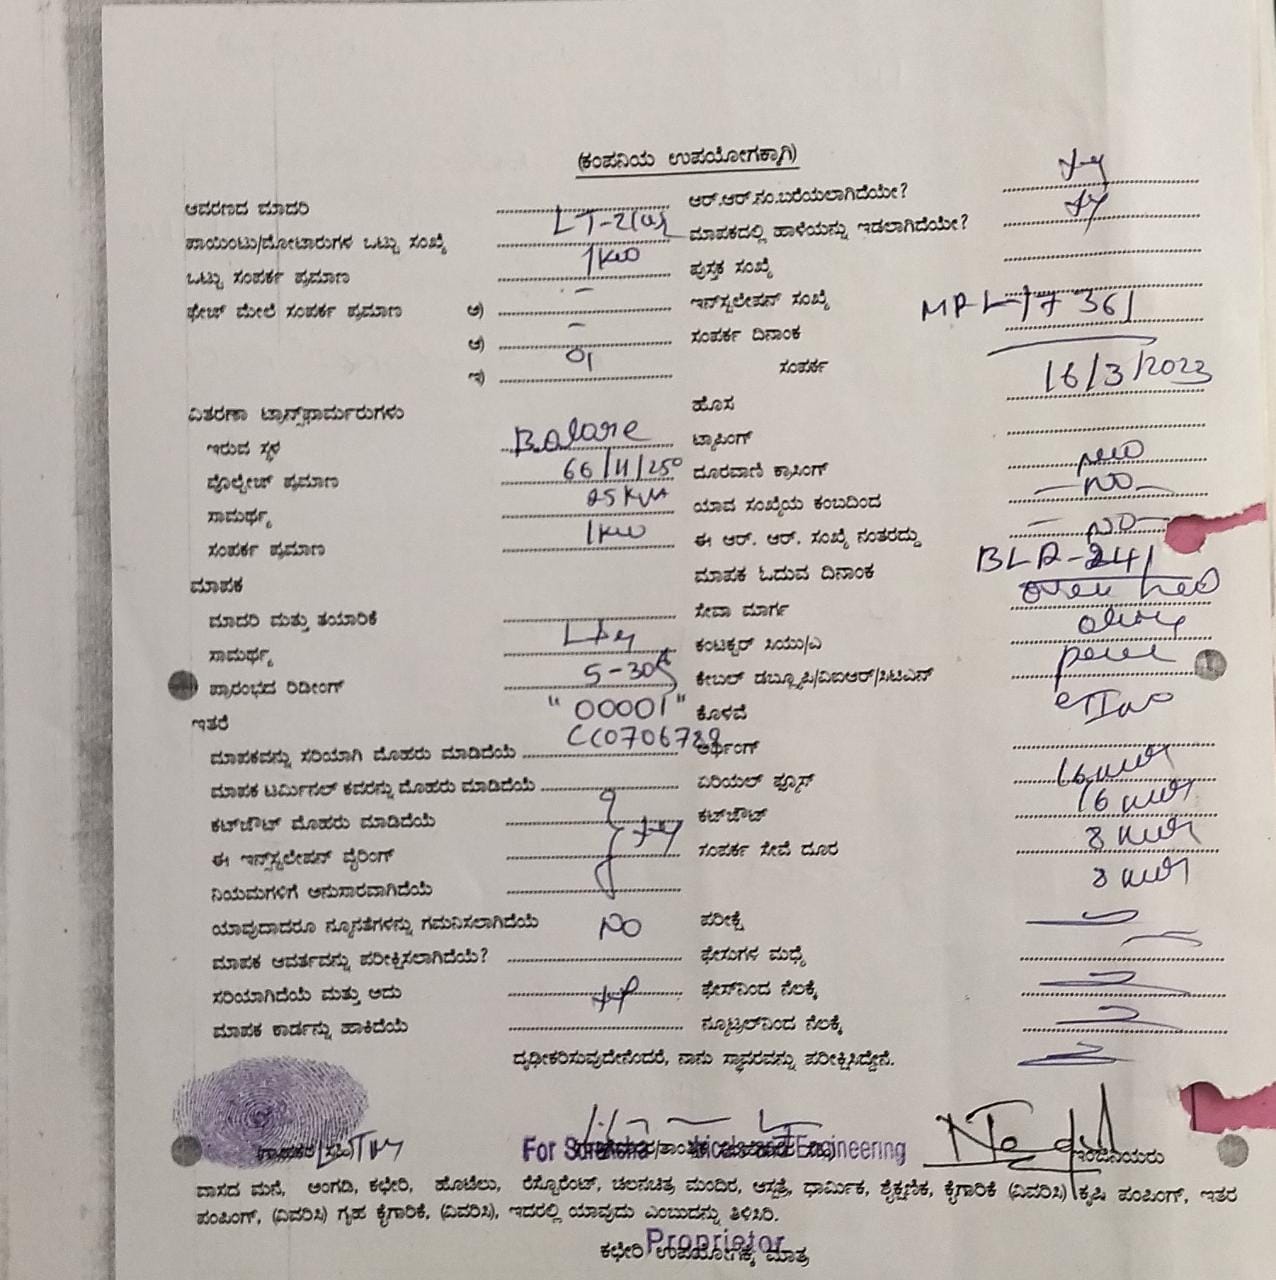 (ಕಂಪನಿಯ ಉಪಯೋಗಕ್ಕಾಗಿ)
ಆವರಣದ ಮಾದರಿ LT-2(a) ಆರ್.ಆರ್.ನಂ.ಬರೆಯಲಾಗಿದೆಯೇ?
ಪಾಯಿಂಟು/ಮೋಟಾರುಗಳ ಒಟ್ಟು ಸಂಖ್ಯೆ 1kw ಮಾಪಕದಲ್ಲಿ ಹಾಳೆಯನ್ನು ಇಡಲಾಗಿದೆಯೇ?
ಒಟ್ಟು ಸಂಪರ್ಕ ಪ್ರಮಾಣ - ಪುಸ್ತಕ ಸಂಖ್ಯೆ
ಫೇಜ್ ಮೇಲೆ ಸಂಪರ್ಕ ಪ್ರಮಾಣ ಅ) - ಇನ್‌ಸ್ಟಲೇಷನ್ ಸಂಖ್ಯೆ MPL17361
ಆ) ಸಂಪರ್ಕ ದಿನಾಂಕ
ಇ) ಸಂಪರ್ಕ 16/3/2023
ವಿತರಣಾ ಟ್ರಾನ್ಸ್‌ಫಾರ್ಮರುಗಳು ಹೊಸ
ಇರುವ ಸ್ಥಳ Balare ಟ್ಯಾಪಿಂಗ್
ವೋಲ್ಟೇಜ್ ಪ್ರಮಾಣ 66/11/250 ದೂರವಾಣಿ ಕ್ರಾಸಿಂಗ್ new
ಸಾಮರ್ಥ್ಯ 25kva ಯಾವ ಸಂಖ್ಯೆಯ ಕಂಬದಿಂದ - NO -
ಸಂಪರ್ಕ ಪ್ರಮಾಣ 1kw ಈ ಆರ್. ಆರ್. ಸಂಖ್ಯೆ ನಂತರದ್ದು - NO -
ಮಾಪಕ ಮಾಪಕ ಓದುವ ದಿನಾಂಕ BLR-241
ಮಾದರಿ ಮತ್ತು ತಯಾರಿಕೆ ಸೇವಾ ಮಾರ್ಗ over head
ಸಾಮರ್ಥ್ಯ ಕಂಟಕ್ಟರ್ ಸಿಯು/ಎ
ಪ್ರಾರಂಭದ ರಿಡೀಂಗ್ 5-30A ಕೇಬಲ್ ಡಬ್ಲ್ಯೂಪಿ/ವಿಐಆರ್/ಸಿಟಿಎನ್
ಇತರೆ "00001" ಕೊಳವೆ
ಮಾಪಕವನ್ನು ಸರಿಯಾಗಿ ಮೊಹರು ಮಾಡಿದೆಯೆ CC0706789 ಅರ್ಥಿಂಗ್
ಮಾಪಕ ಟರ್ಮಿನಲ್ ಕವರನ್ನು ಮೊಹರು ಮಾಡಿದೆಯೆ ಏರಿಯಲ್ ಫ್ಯೂಸ್ 16
ಕಟ್‌ಔಟ್ ಮೊಹರು ಮಾಡಿದೆಯೆ ಕಟ್‌ಔಟ್ 16
ಈ ಇನ್ಸ್‌ಸ್ಟಲೇಷನ್ ವೈರಿಂಗ್ ಸಂಪರ್ಕ ಸೇವೆ ದೂರ 8
ನಿಯಮಗಳಿಗೆ ಅನುಸಾರವಾಗಿದೆಯೆ 8
ಯಾವುದಾದರೂ ನ್ಯೂನತೆಗಳನ್ನು ಗಮನಿಸಲಾಗಿದೆಯೆ NO ಪರೀಕ್ಷೆ
ಮಾಪಕ ಆವರ್ತವನ್ನು ಪರೀಕ್ಷಿಸಲಾಗಿದೆಯೆ? ಫೇಸುಗಳ ಮಧ್ಯೆ
ಸರಿಯಾಗಿದೆಯೆ ಮತ್ತು ಅದು ಫೇಸ್‌ನಿಂದ ನೆಲಕ್ಕೆ
ಮಾಪಕ ಕಾರ್ಡನ್ನು ಹಾಕಿದೆಯೆ ನ್ಯೂಟ್ರಲ್‌ನಿಂದ ನೆಲಕ್ಕೆ
ದೃಢೀಕರಿಸುವುದೇನೆಂದರೆ, ನಾನು ಸ್ಥಾವರವನ್ನು ಪರೀಕ್ಷಿಸಿದ್ದೇನೆ.
LTM For and Engineering ಇಂಜಿನಿಯರು
ವಾಸದ ಮನೆ, ಅಂಗಡಿ, ಕಛೇರಿ, ಹೊಟೆಲು, ರೆಸ್ಟೊರೆಂಟ್, ಚಲನಚಿತ್ರ ಮಂದಿರ, ಆಸ್ಪತ್ರೆ, ಧಾರ್ಮಿಕ, ಶೈಕ್ಷಣಿಕ, ಕೈಗಾರಿಕೆ (ವಿವರಿಸಿ) ಕೃಷಿ ಪಂಪಿಂಗ್, ಇತರ
ಪಂಪಿಂಗ್, (ವಿವರಿಸಿ) ಗೃಹ ಕೈಗಾರಿಕೆ, (ವಿವರಿಸಿ), ಇದರಲ್ಲಿ ಯಾವುದು ಎಂಬುದನ್ನು ತಿಳಿಸಿರಿ.
Proprietor
ಕಛೇರಿ ಉಪಯೋಗಕ್ಕೆ ಮಾತ್ರ